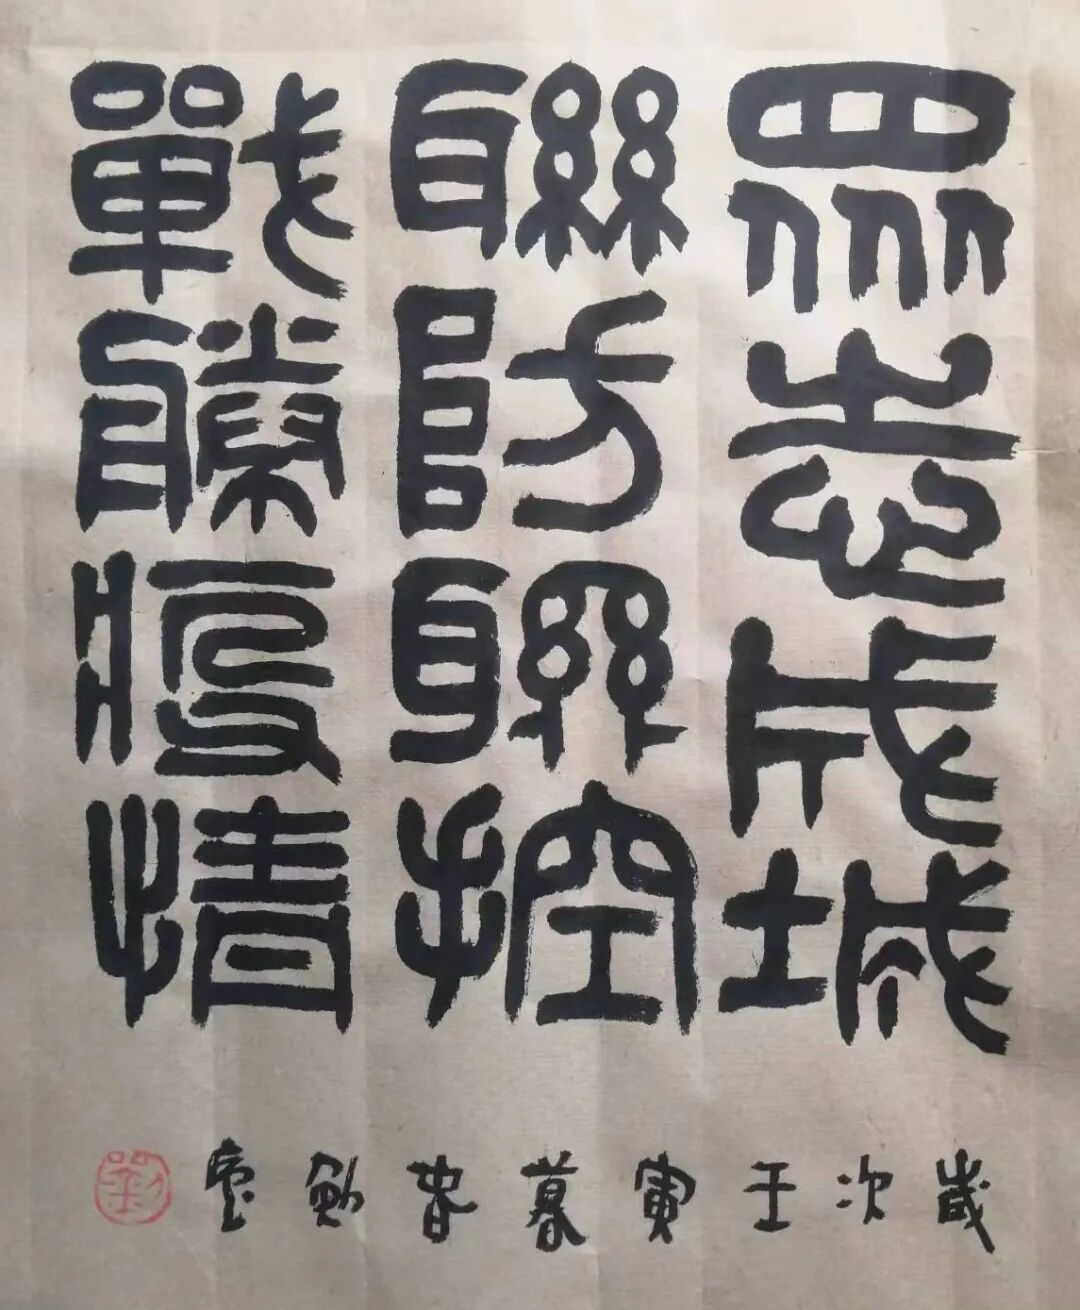 眾志成城
聯防聯控
戰勝疫情
歲次壬寅暮春
劉